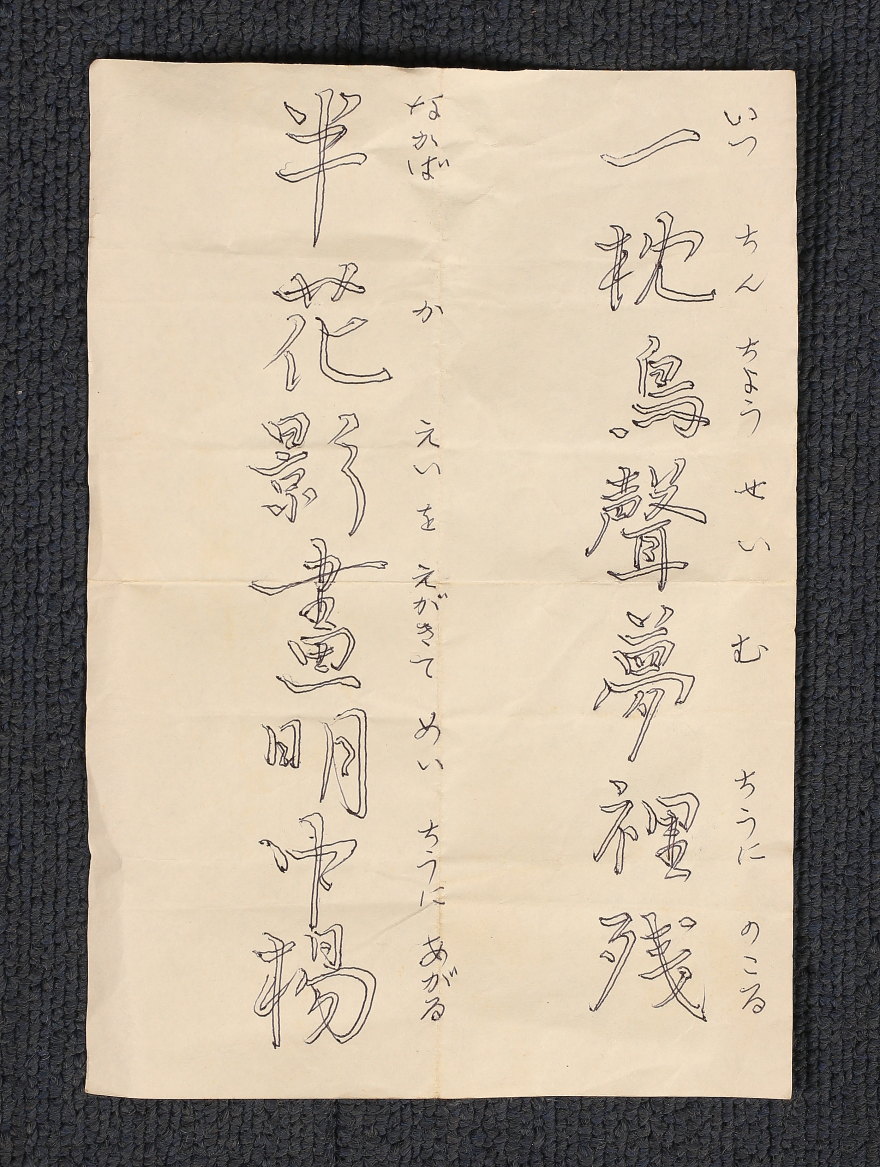 いつ ちん ちよう せい む ちうに のこる
一枕鳥聲夢裡残
なかば か えいを えがきて めい ちうに あがる
半花影畫明中楊